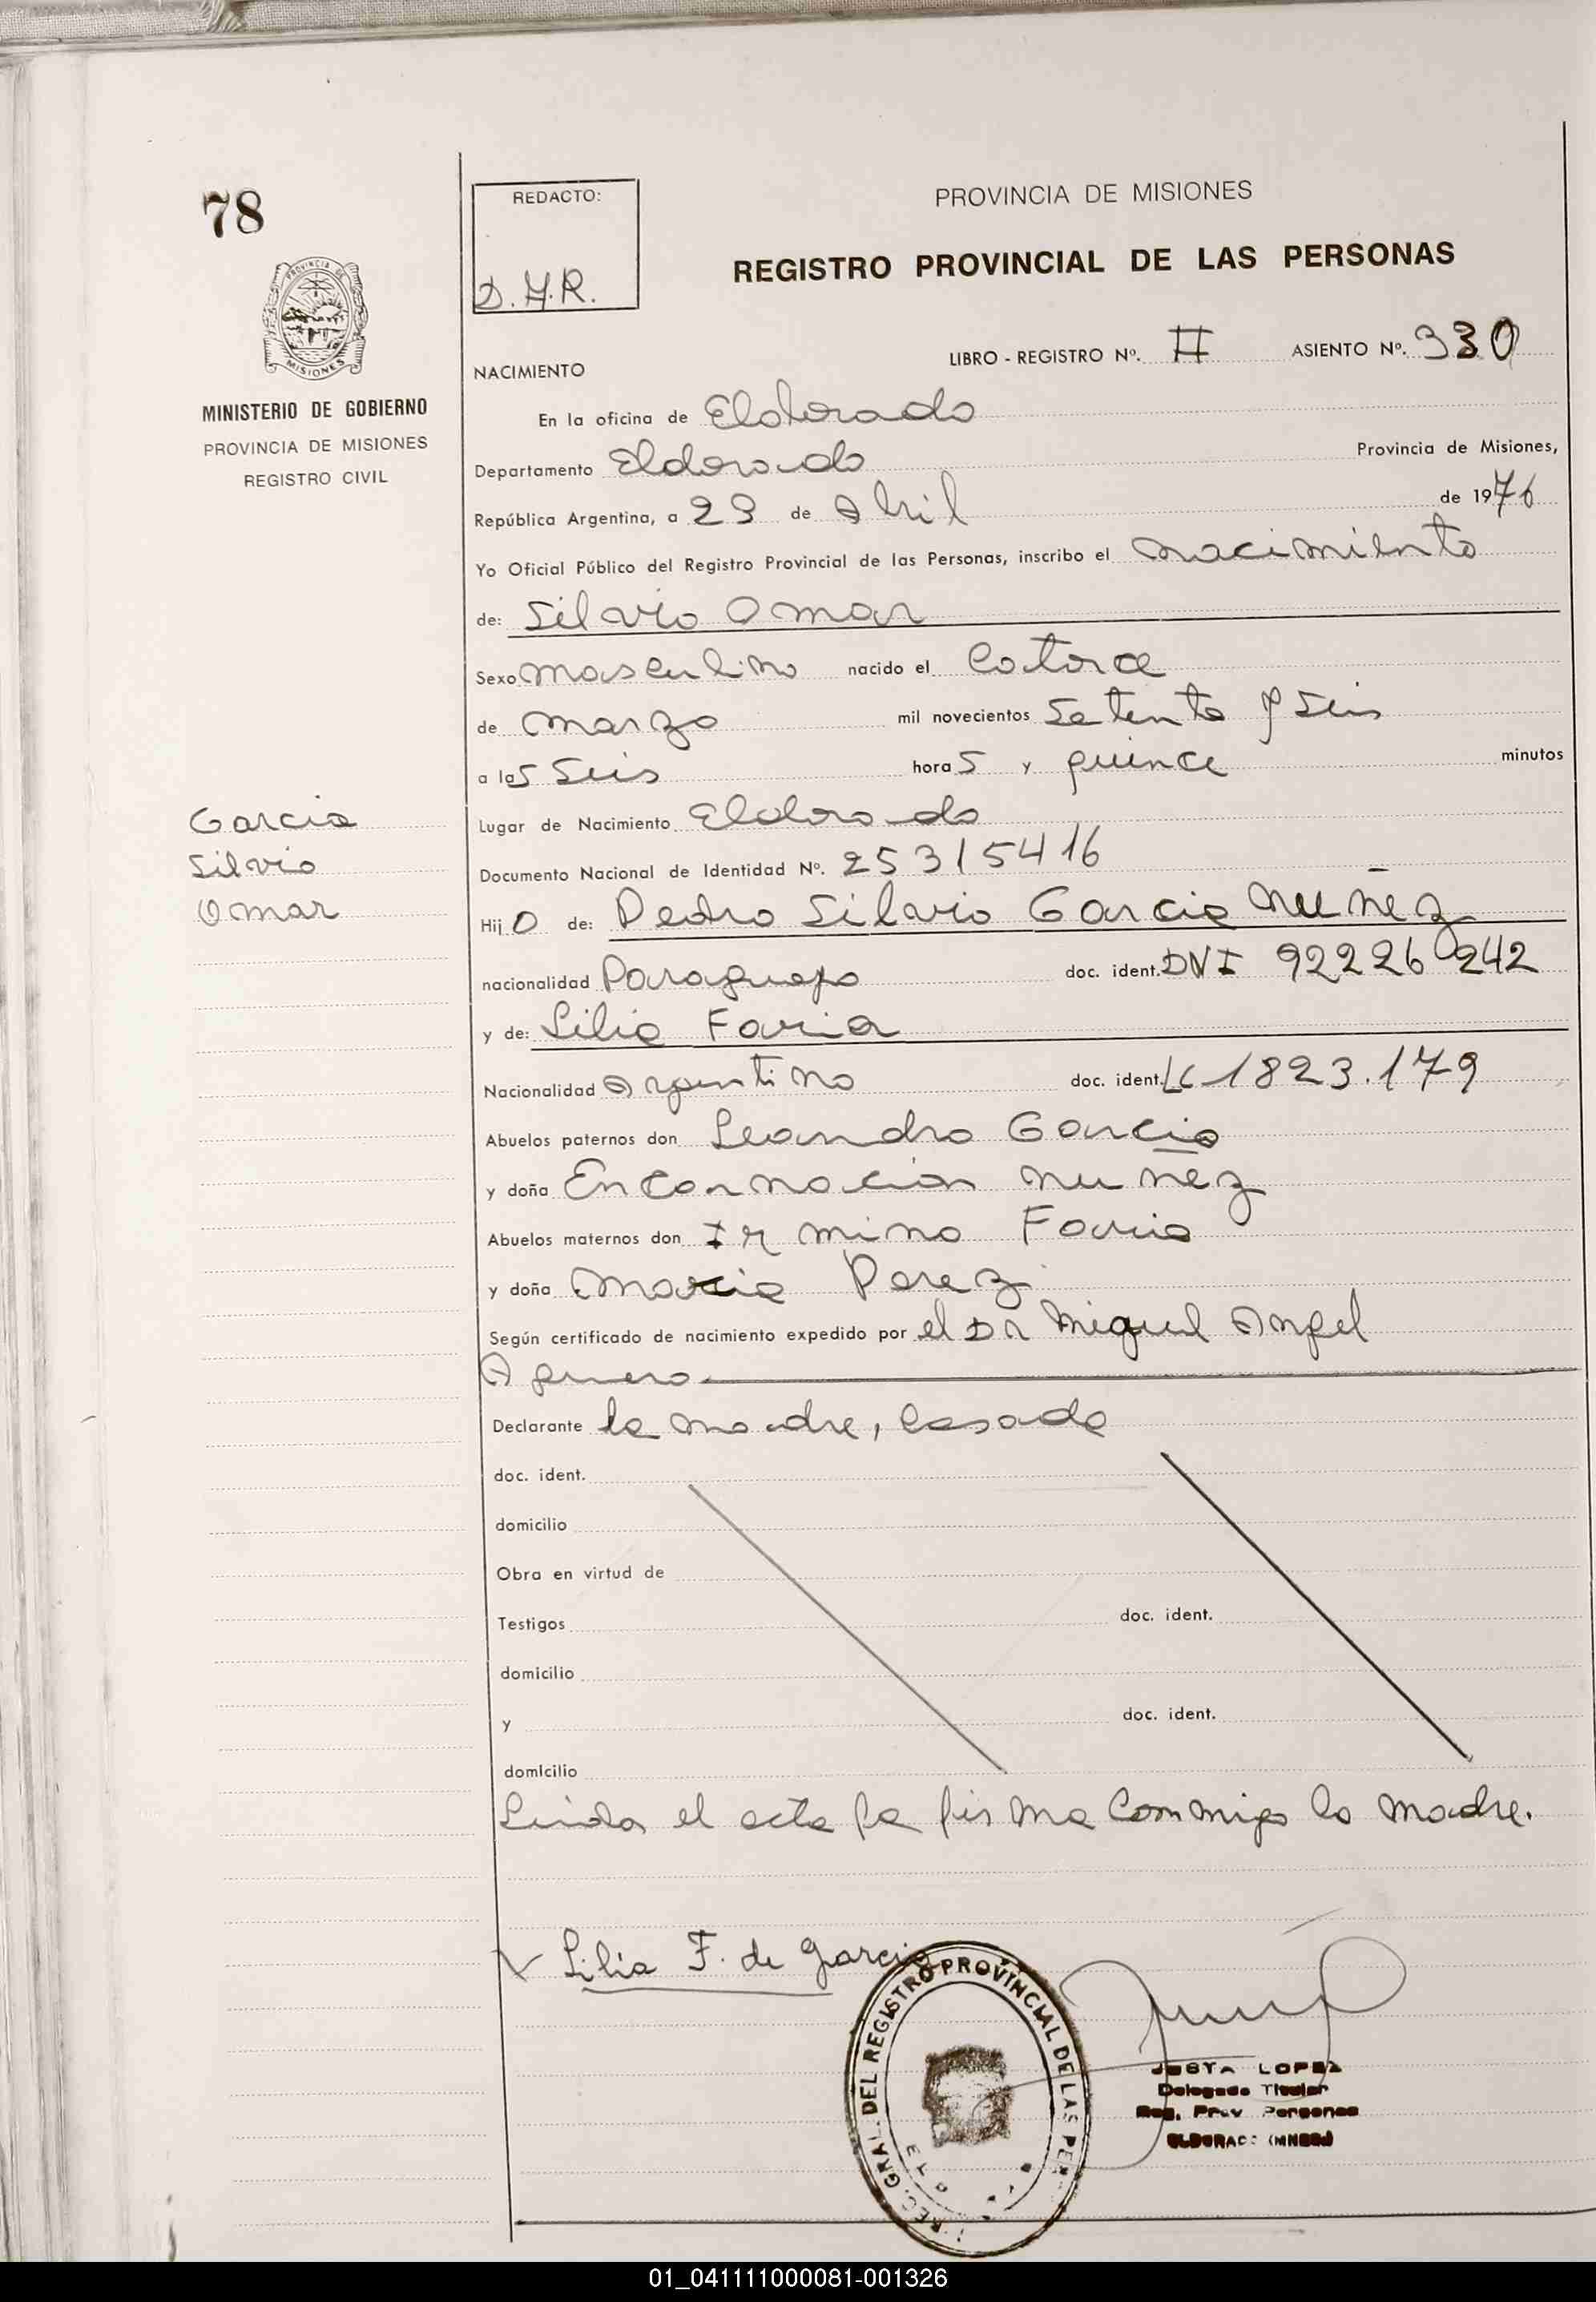 78
PROVINCIA DE
MISIONES
MINISTERIO DE GOBIERNO
PROVINCIA DE MISIONES
REGISTRO CIVIL
Garcia
Silvio
Omar
REDACTO:
D.H.R.
PROVINCIA DE MISIONES
REGISTRO PROVINCIAL DE LAS PERSONAS
LIBRO - REGISTRO Nº. II ASIENTO Nº. 330
NACIMIENTO
En la oficina de Eldorado
Departamento Eldorado Provincia de Misiones,
República Argentina, a 23 de Abril de 1976
Yo Oficial Público del Registro Provincial de las Personas, inscribo el nacimiento
de: Silvio Omar
Sexo masculino nacido el Catorce
de marzo mil novecientos Setenta y Seis
a las Seis horas y quince minutos
Lugar de Nacimiento Eldorado
Documento Nacional de Identidad Nº. 25315416
Hijo de: Pedro Silvio Garcia Nuñez
nacionalidad Paraguaya doc. ident. DNI 92226242
y de: Lilia Faria
Nacionalidad Argentina doc. ident. LC 1823.179
Abuelos paternos don Leandro Garcia
y doña Encarnacion nunez
Abuelos maternos don Irmino Faria
y doña Maria Perez
Según certificado de nacimiento expedido por el Dr Miguel Angel
Aguero
Declarante la madre, Casada
doc. ident.
domicilio
Obra en virtud de
Testigos doc. ident.
domicilio
y doc. ident.
domicilio
Leida el acta la firma Conmigo la madre.
Lilia F. de Garcia
REG. GRAL. DEL REGISTRO PROVINCIAL DE LAS PER
JUSTA LOPEZ
Delegada Titular
Reg. Prov. Personas
ELDORADO (MNES)
01_041111000081-001326